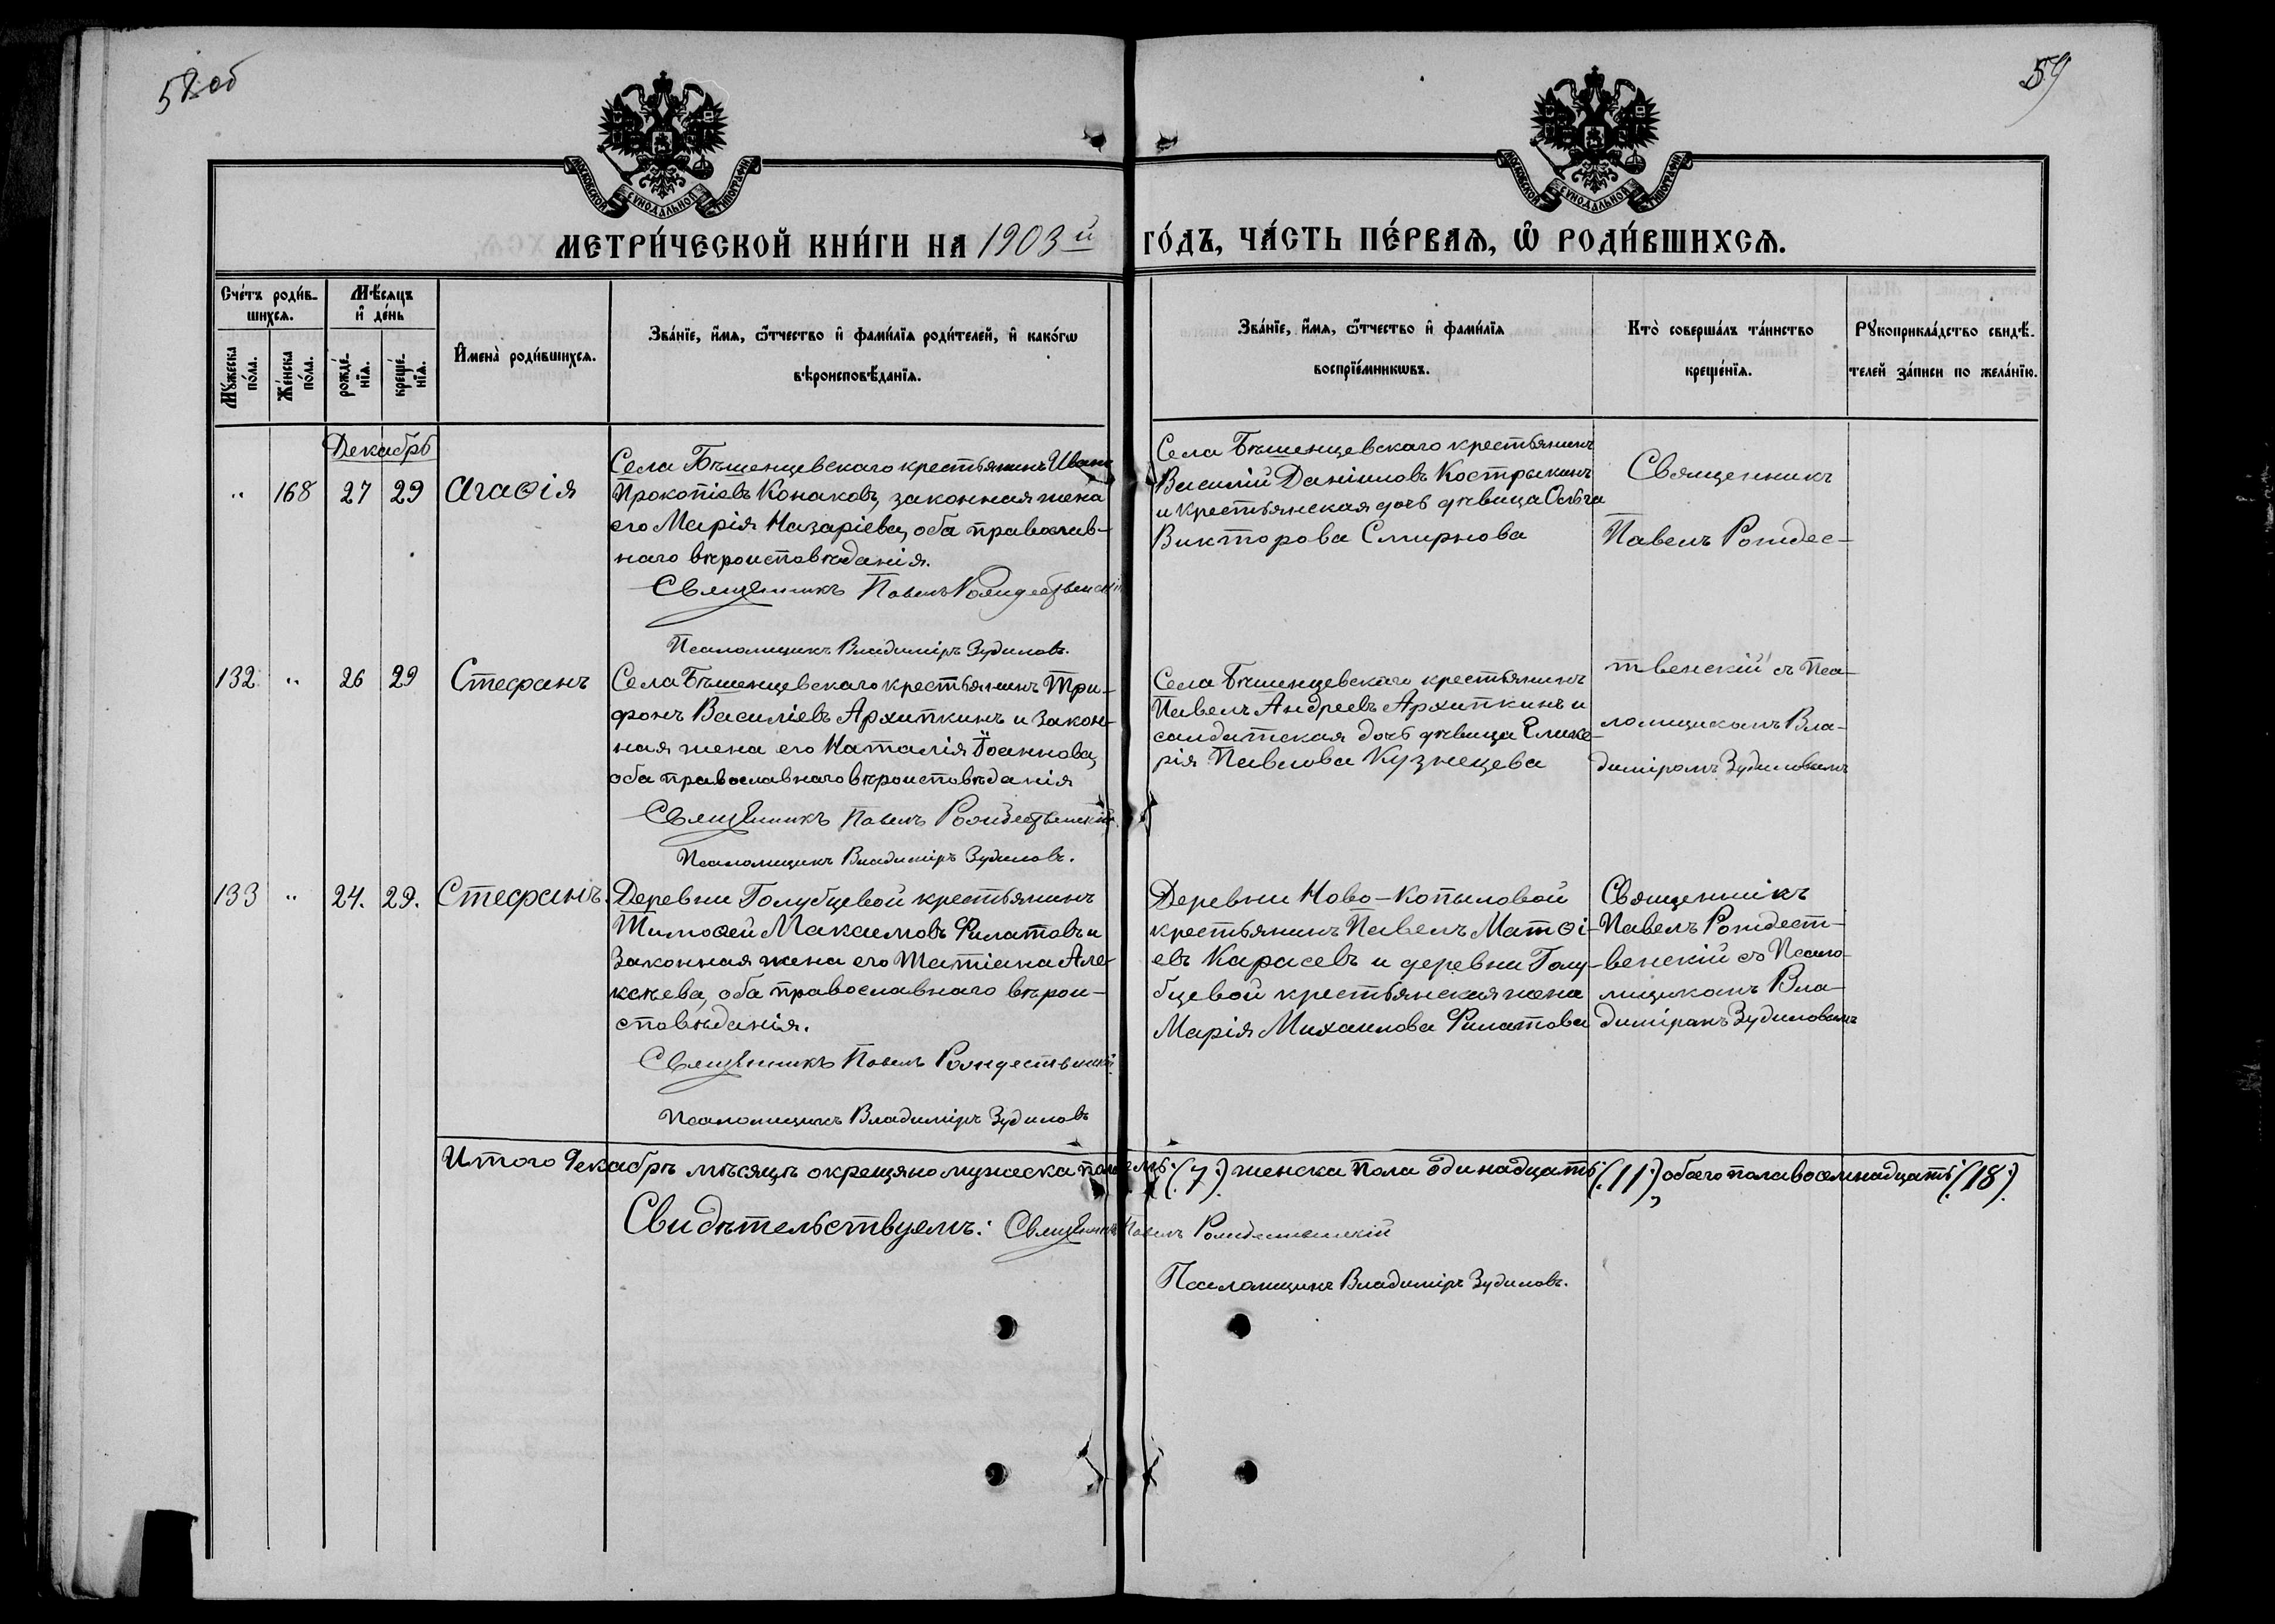 58 об
59
МОСКОВСКОЙ СѴНОДАЛЬНОЙ ТИПОГРАФІИ
МОСКОВСКОЙ СѴНОДАЛЬНОЙ ТИПОГРАФІИ
МЕТРИ́ЧЕСКОЙ КНИ́ГИ НА 1903й ГО́ДЪ, ЧА́СТЬ ПЕ́РВАѦ, Ѽ РОДИ́ВШИХСѦ.
Сче́тъ роди́в-
шихсѧ.
Мꙋ́жеска по́ла.
Же́нска по́ла.
Мѣ́сѧцъ
и҆ де́нь
рожде́-
нїѧ.
креще́-
нїѧ.
И҆мена̀ роди́вшихсѧ.
Зва́нїе, и҆́мѧ, ѻ҆́тчество и҆ фами́лїѧ роди́телей, и҆ како́гѡ
вѣроисповѣ́данїѧ.
Зва́нїе, и҆́мѧ, ѻ҆́тчество и҆ фами́лїѧ
воспрїе́мникѡвъ.
Кто̀ соверша́лъ та́инство
креще́нїѧ.
Рꙋкоприкла́дство свидѣ́-
телей за́писи по жела́нїю.
Декабрь
" 168 27 29 Агаѳія
Села Бѣшенцевскаго крестьянинъ Иванъ
Прокопіевъ Конаковъ, законная жена
его Марія Назаріева, оба православ-
наго вѣроисповѣданія.
Священникъ Павелъ Рождественскій
Псаломщикъ Владиміръ Зудиловъ.
Села Бѣшенцевскаго крестьянинъ
Василій Даніиловъ Кострыкинъ
и крестьянская дочь дѣвица Ольга
Викторова Смирнова
Священникъ
Павелъ Рождес-
твенскій съ Пса-
ломщикомъ Вла-
диміромъ Зудиловымъ
132 " 26 29 Стефанъ
Села Бѣшенцевскаго крестьянинъ Три-
фонъ Василіевъ Архипкинъ и закон-
ная жена его Наталія Іоаннова,
оба православнаго вѣроисповѣданія
Священникъ Павелъ Рождественскій
Псаломщикъ Владиміръ Зудиловъ.
Села Бѣшенцевскаго крестьянинъ
Павелъ Андреевъ Архипкинъ и
солдатская дочь дѣвица Глике-
рія Павлова Кузнецева
133 " 24. 29. Стефанъ.
Деревни Голубцевой крестьянинъ
Тимоѳей Максимовъ Филатовъ и
законная жена его Татіана Але-
ксѣева, оба православнаго вѣрои-
сповѣданія.
Священникъ Павелъ Рождественскій
Псаломщикъ Владиміръ Зудиловъ
Деревни Ново-Копыловой
крестьянинъ Павелъ Матѳі-
евъ Карасевъ и деревни Голу-
бцевой крестьянская жена
Марія Михаилова Филатова
Священникъ
Павелъ Рождест-
венскій съ Псало-
мщикомъ Вла-
диміромъ Зудиловымъ
Итого Декабрѣ мѣсяцѣ окрещяно мужеска пола (7) женска пола одинадцать (11), обоего пола восемнадцать (18).
Свидѣтельствуемъ: Священникъ Павелъ Рождественскій
Псаломщикъ Владиміръ Зудиловъ.